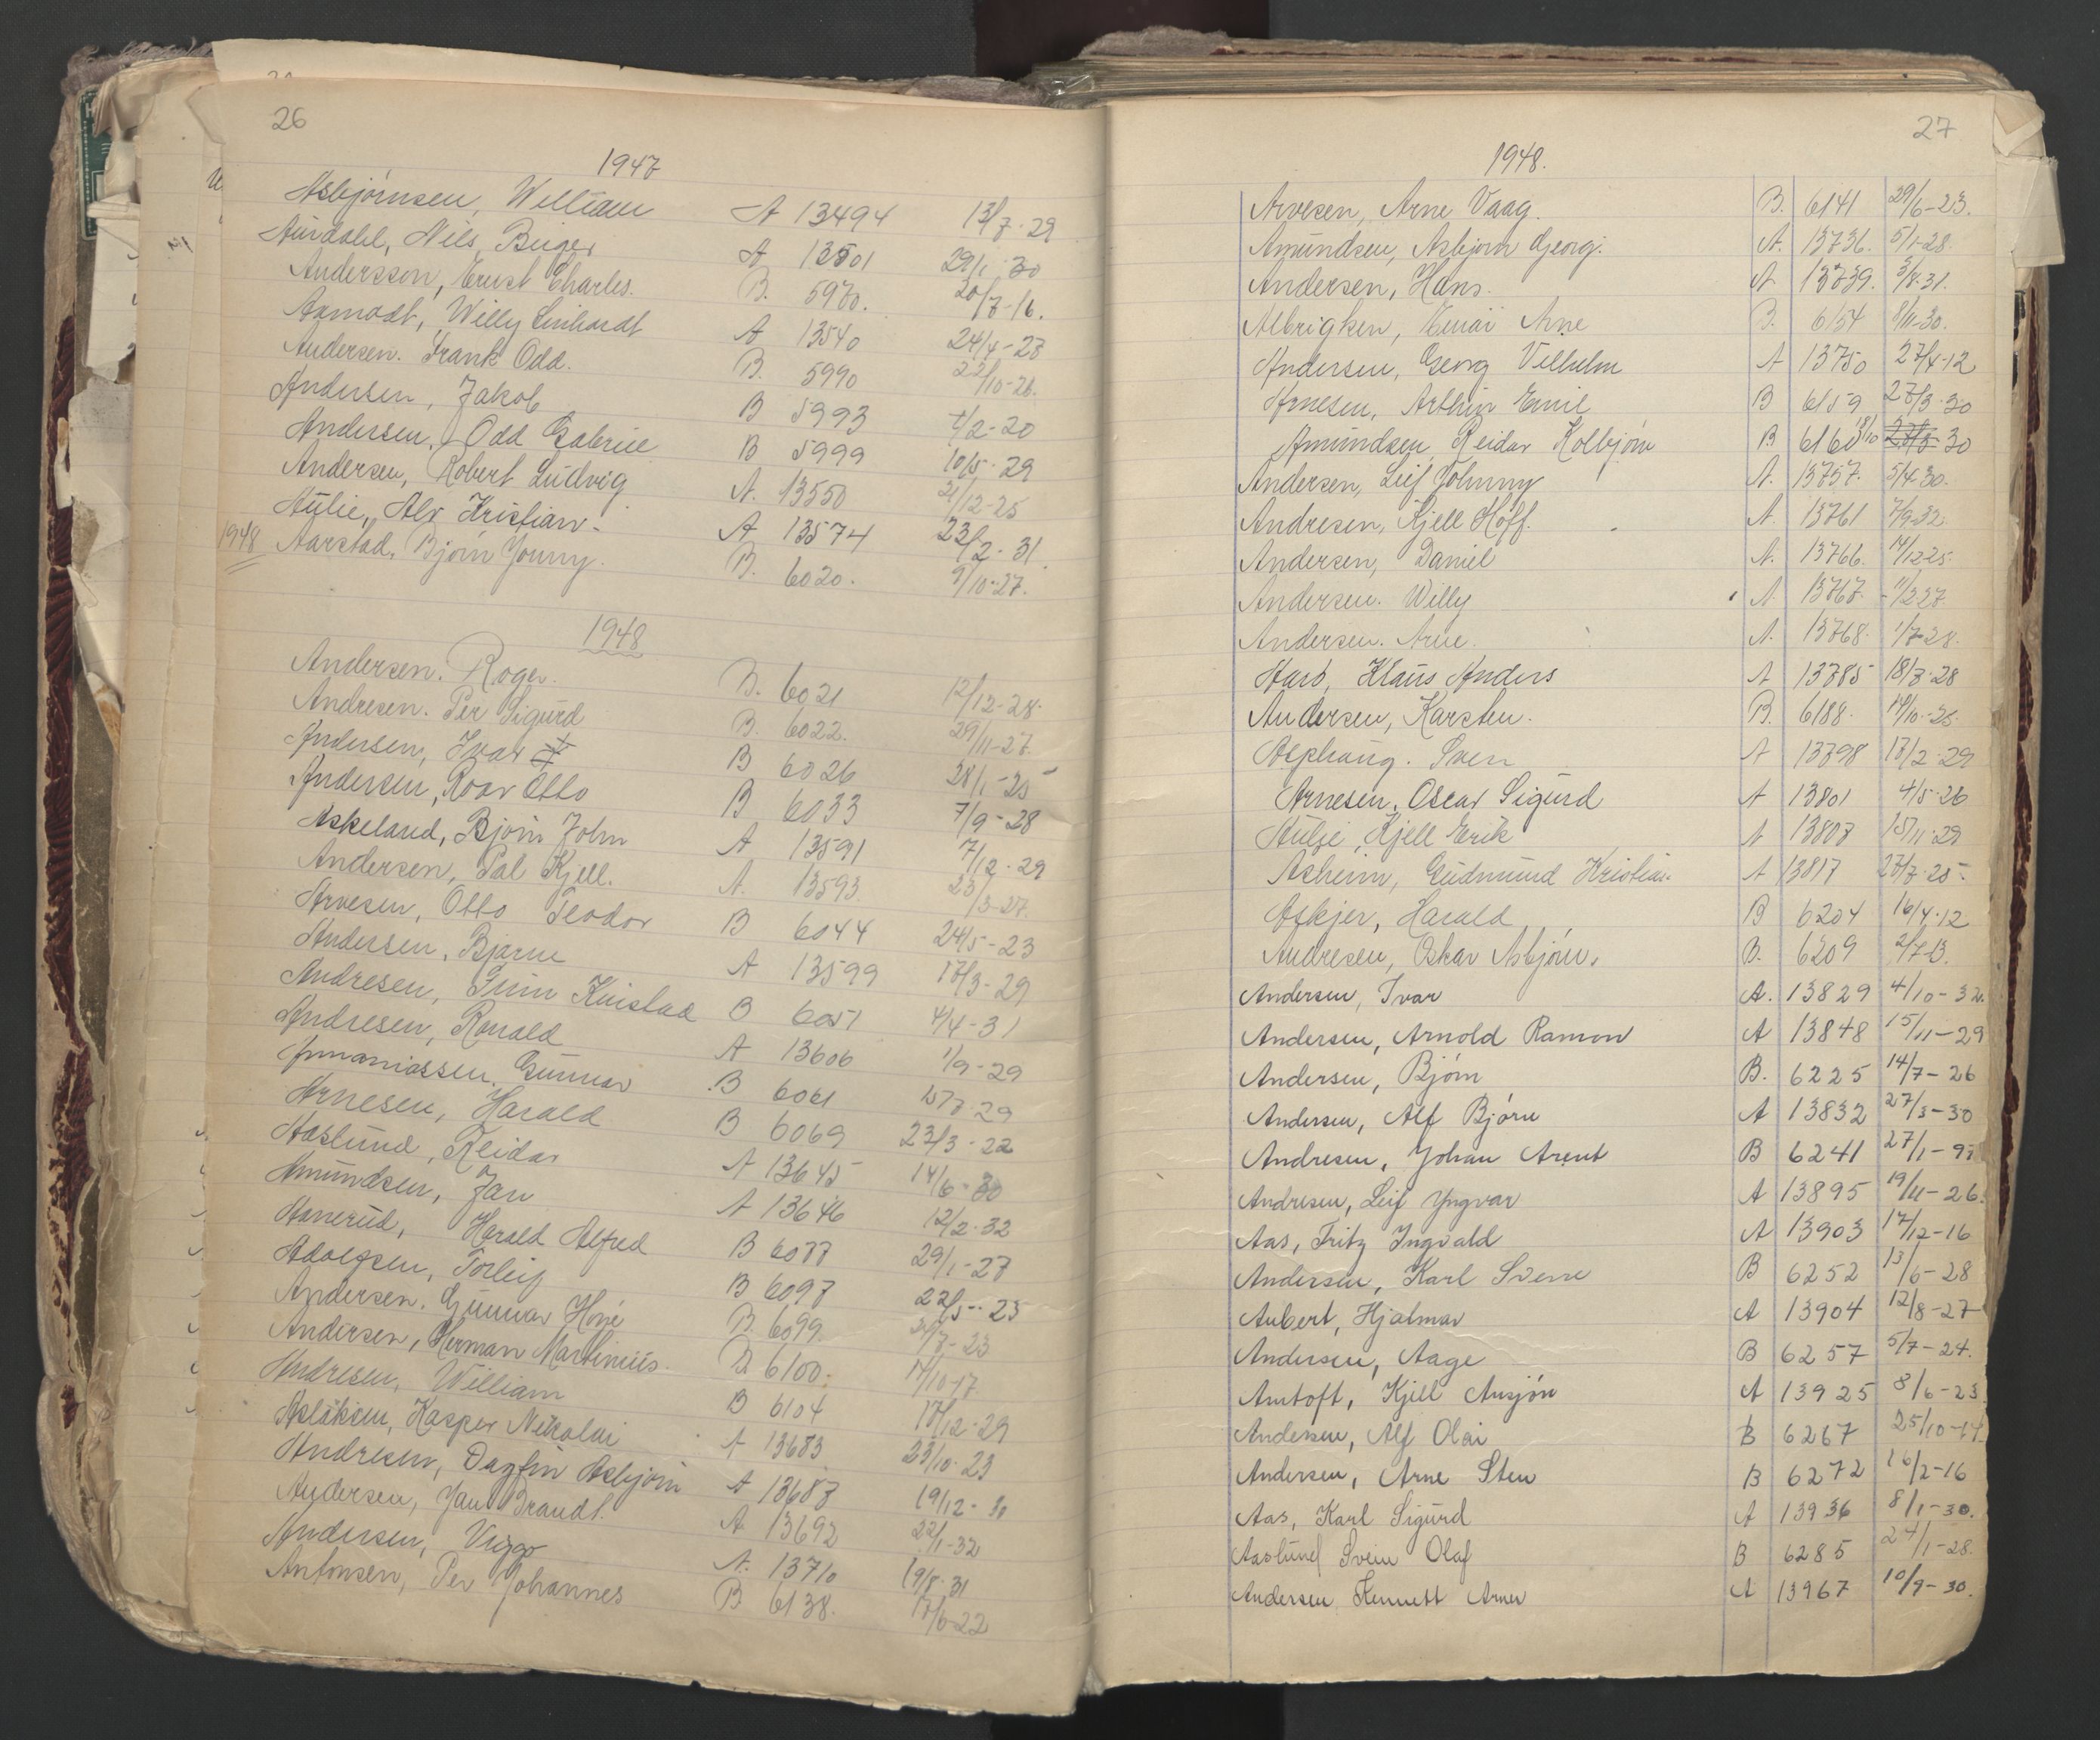 26
1947
Asbjørnsen, William A 13494 13/7-29
Aurdahl, Nils Birger A 13501 29/1-30
Andersson, Ernst Charles. B. 5970. 20/7-16.
Aamodt, Willy Linhardt A 13540 24/4-28
Andersen. Frank Odd. B. 5990 22/10-26.
Andersen, Jakob B 5993 /2-20
Andersen, Odd Gabriel B 5999 10/5-29
Andersen, Robert Ludvig A. 13550 21/12-25
Aulie, Alv Kristian A 13574 23/2-31
1948 Aarstad, Bjørn Jonny. B. 6020. 9/10-27.
1948
Andersen. Roger. B. 6021 12/12-28.
Andresen. Per Sigurd B. 6022. 29/11-27.
Andersen, Ivar B 6026 28/1-25
Andersen, Roar Otto B 6033 7/9-28
Askeland, Bjørn John A 13591 7/12-29
Andersen, Pål Kjell. A. 13593. 23/3-27.
Arnesen, Otto Teodor B 6044 24/5-23
Andersen, Bjarne A 13599 17/3-29
Andresen, Finn Knistad B 6051 4/4-31
Andresen, Ronald A 13606 1/9-29
Annaniassen, Gunnar B 6061 15/7-29
Arnesen, Harald B 6069 23/3-22
Aaslund, Reidar A 13645 14/6-30
Amundsen, Jan A 13646 12/2-32
Aanerud, Harald Alfred B 6077 29/1-27
Adolfsen, Torleif B 6097 22/5-23
Andersen, Gunnar Høye B. 6099 -23
Andersen, Herman Martinius. B 6100. 14/10-17
Andresen, William B 6104 17/12-29
Aslaksen, Kasper Nikolai A 13683 23/10-23
Andresen, Dagfin Asbjørn A 13687 19/12-30
Andersen, Jan Brandt. A 13692 22/1-32
Andersen, Viggo A. 13710 19/8-31
Antonsen, Per Johannes B 6138. 17/6-22
27
1948.
Arvesen, Arne Vaag. B. 6141 29/6-23.
Amundsen, Asbjørn Georg. A. 13736. 5/1-28.
Andersen, Hans. A 13739. 3/8-31.
Albrigtsen, Arne B. 6154 8/11-30.
Andersen, Georg Vilhelm A 13750 27/4-12
Arnesen, Arthur Emil B 6159 27/3-30
Amundsen, Reidar Kolbjørn B 6160 18/10 -30
Andersen, Leif Johnny A. 13757. 5/4-30.
Andresen, Kjell Hoff. A. 13761 7/9-32.
Andersen, Daniel A. 13766. 14/12-25.
Andersen. Willy A 13767. 11/2-27
Andersen. Arne. A. 13768. 1/7-28.
Aarø, Klaus Anders A 13785 18/3-28
Andersen, Karsten. B. 6188. 14/10-28.
Asphaug. Sven A 13798 17/2-29
Arnesen, Oscar Sigurd A 13801 4/5-26
Aulie, Kjell Erik A 13807 15/11-29
Asheim, Gudmund Kristian. A 13817 27/7-25.
Askjer, Harald B 6204 16/4-12
Andresen, Oskar Asbjørn. B. 6209 2/7-13.
Andersen, Ivar A. 13829 4/10-32.
Andersen, Arnold Ramon A 13848 15/11-29
Andersen, Bjørn B. 6225 14/7-26
Andersen, Alf Bjørn A 13832 27/3-30
Andresen, Johan Arent B 6241 27/1-97
Andresen, Leif Yngvar A 13895 19/11-26.
Aas, Fritz Ingvald A 13903 17/12-16
Andersen, Karl Sverre B 6252 13/6-28
Aubert, Hjalmar A 13904 12/8-27
Andersen, Aage B 6257 5/7-24.
Amtoft, Kjell Ansjøn A 13925 8/6-23
Andersen, Alf Olai B 6267 25/10-14.
Andersen, Arne Sten B 6272 16/2-16
Aas, Karl Sigurd A 13936 8/1-30.
Aaslund Svein Olaf B 6285 24/1-28.
Andersen Kennett Arner A 13967 10/9-30.